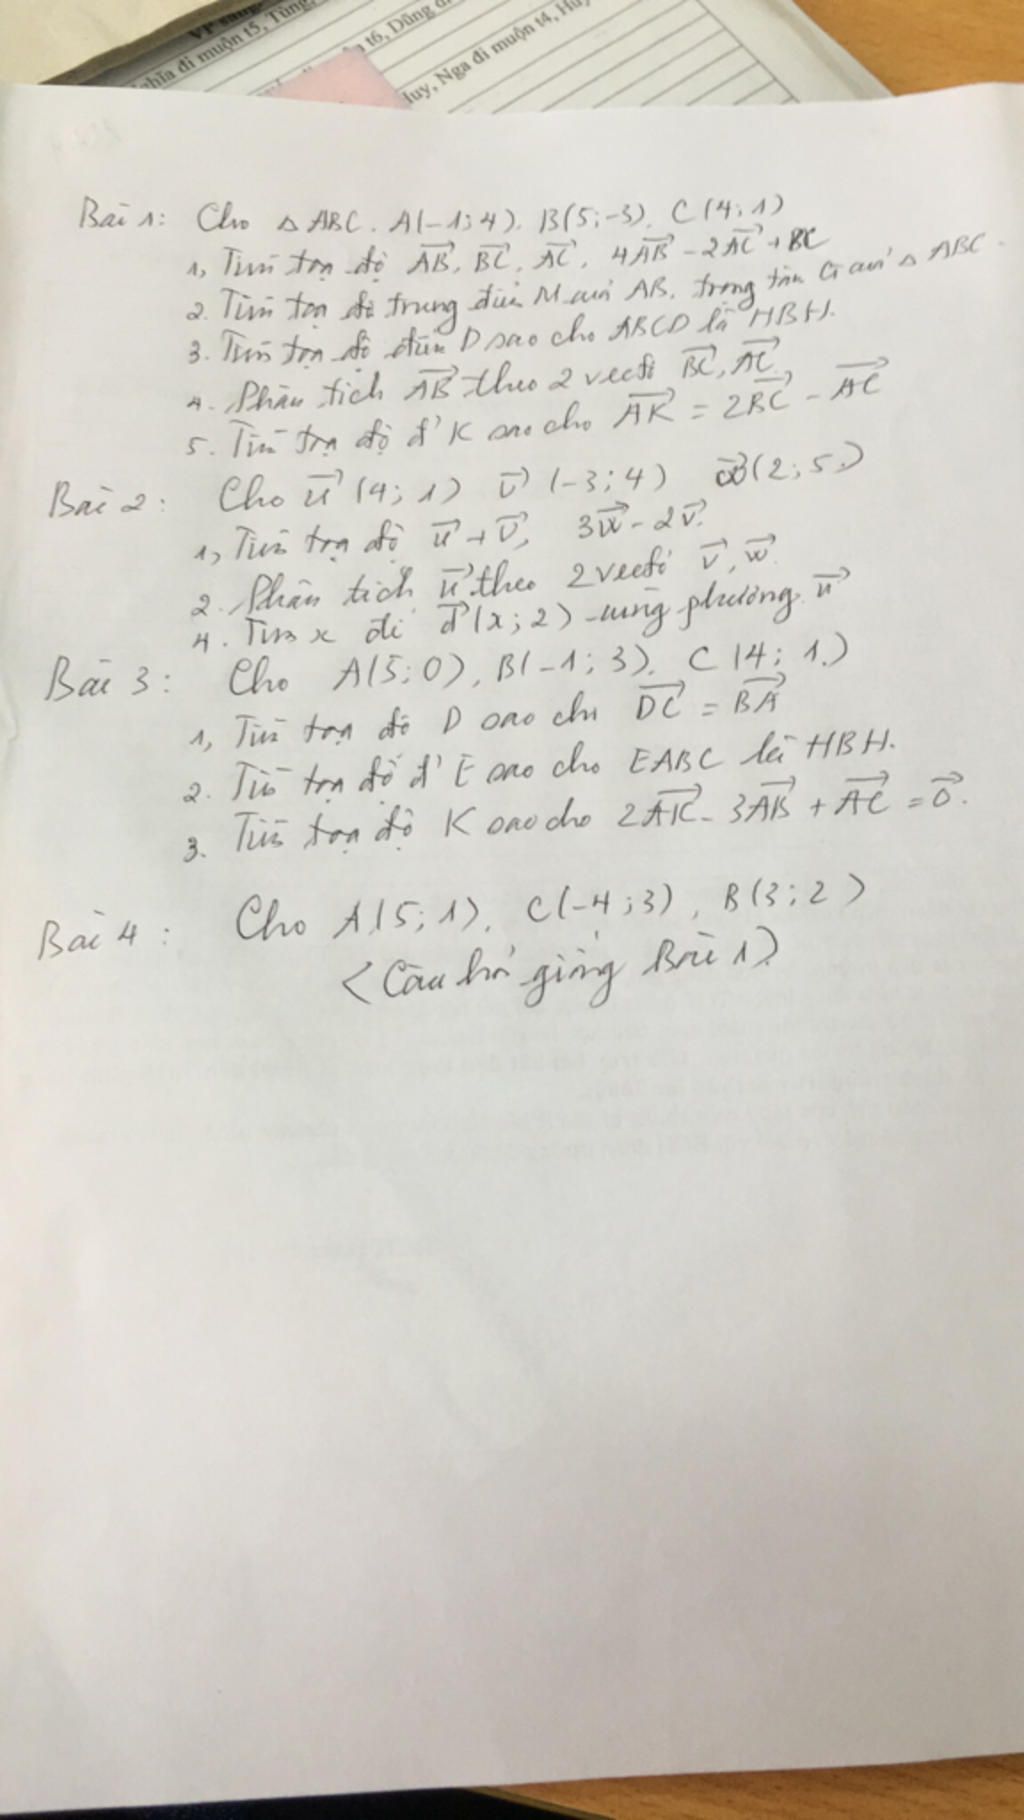 VP sáng
nghĩa đi muộn t5, Tùng,
t6, Dũng đ
Huy, Nga đi muộn t4, Hu
Bài 1: Cho △ ABC. A(-1;4). B(5;-3). C(4;1)
1, Tìm tọa độ AB→, BC→, AC→, 4AB→ - 2AC→ + BC→
2. Tìm tọa độ trung điểm M của AB. trọng tâm G của △ ABC.
3. Tìm tọa độ điểm D sao cho ABCD là HBH.
4. Phân tích AB→ theo 2 vectơ BC→, AC→
5. Tìm tọa độ đ' K sao cho AK→ = 2BC→ - AC→
Bài 2: Cho u→ (4; 1) v→ (-3; 4) w→(2; 5.)
1, Tìm tọa độ u→ + v→, 3w→ - 2v→.
2. Phân tích u→ theo 2 vectơ v→, w→.
4. Tìm x để d→(x; 2) cùng phương u→
Bài 3: Cho A(5; 0), B(-1; 3), C(4; 1.)
1, Tìm tọa độ D sao cho DC→ = BA→
2. Tìm tọa độ đ' E sao cho EABC là HBH.
3. Tìm tọa độ K sao cho 2AK→ - 3AB→ + AC→ = 0→.
Bài 4: Cho A(5; 1), C(-4; 3), B(3; 2)
<Câu hỏi giống Bài 1>